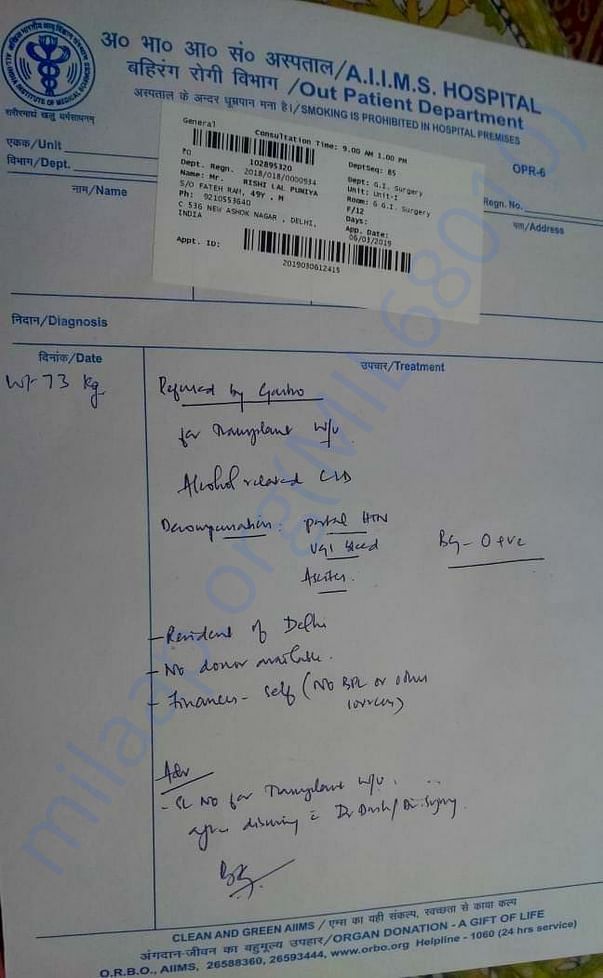 अ० भा० आ० सं० अस्पताल/A.I.I.M.S. HOSPITAL
बहिरंग रोगी विभाग /Out Patient Department
अस्पताल के अन्दर धूम्रपान मना है।/SMOKING IS PROHIBITED IN HOSPITAL PREMISES
शरीरमाद्यं खलु धर्मसाधनम्
OPR-6
एकक/Unit
विभाग/Dept.
नाम/Name
Regn. No.
पता/Address
General
Consultation Time: 9.00 AM 1.00 PM
102895320
DeptSeq: 85
Dept. Regn. 2018/018/0000934
Dept: G.I. Surgery
Name: Mr. RISHI LAL PUNIYA
Unit: Unit-I
S/O FATEH RAM, 49Y , M
Room: 6 G.I. Surgery
Ph: 9210553640
F/12
C 536 NEW ASHOK NAGAR , DELHI,
Days:
INDIA
App. Date:
06/03/2019
Appt. ID:
2019030612415
निदान/Diagnosis
दिनांक/Date
उपचार/Treatment
Wt-73 Kg
Referred by Gastro
for Transplant w/u
Alcohol related CLD
Decompensation: portal HTN
UGI bleed
Ascites
BG - O +ve
- Resident of Delhi
- No donor available.
- Finances - self (No BPL or other
sources)
Adv
- SL No for Transplant w/u
after discussing c̄ Dr Dash/
milaap.org(MIL68010)
CLEAN AND GREEN AIIMS / एम्स का यही संकल्प, स्वच्छता से काया कल्प
अंगदान-जीवन का बहुमूल्य उपहार/ORGAN DONATION - A GIFT OF LIFE
O.R.B.O., AIIMS, 26588360, 26593444, www.orbo.org Helpline - 1060 (24 hrs service)